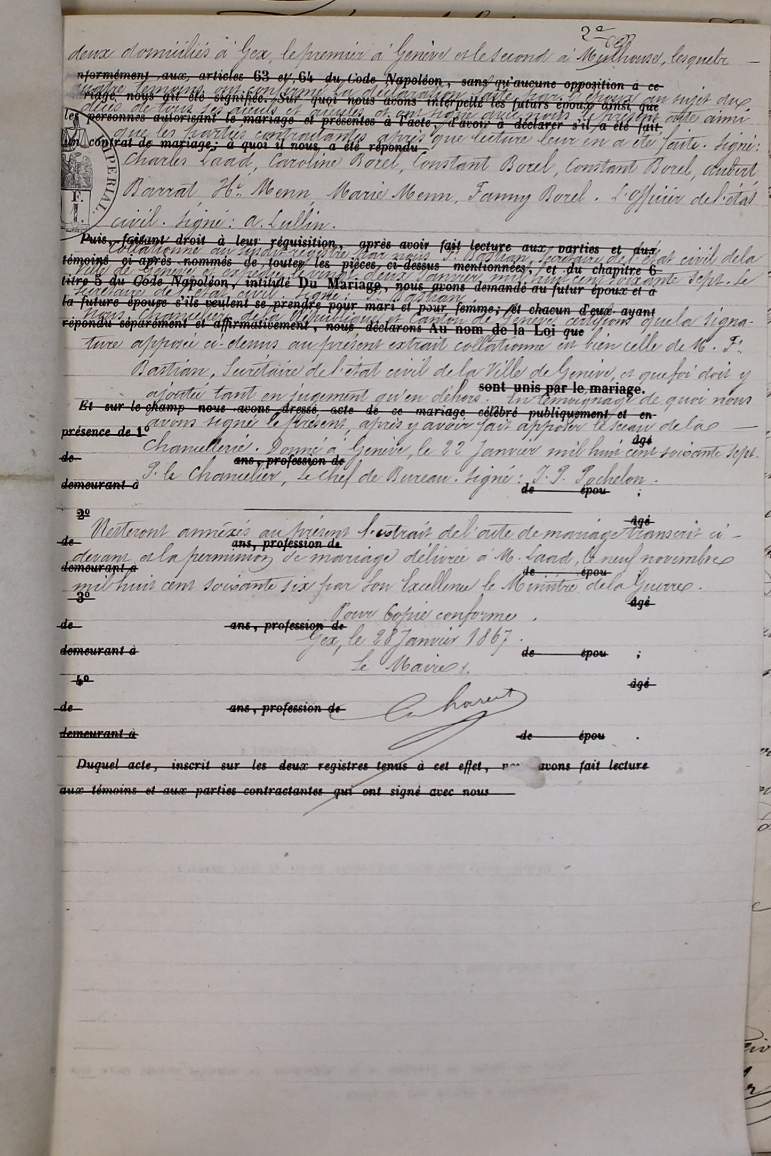 2e
deux domiciliés à Gex, le premier à Genève et le second à Mulhouse, lesquels
conformément aux articles 63 et 64 du Code Napoléon, sans qu'aucune opposition à ce
quatre témoins ont confirmé la déclaration faite par l'époux au sujet du
mariage, nous ait été signifiée. Sur quoi nous avons interpellé les futurs époux ainsi que
décès de ses aïeuls et ont signé avec nous le présent acte ainsi
les personnes autorisant le mariage et présentes à l'acte, d'avoir à déclarer s'il a été fait
que les parties contractantes après que lecture leur en a été faite. Signé:
un contrat de mariage; à quoi il nous a été répondu
Charles Laad, Caroline Borel, Constant Borel, Constant Borel, Aubert
Barrat, Hri Menn, Marie Menn, Fanny Borel. L'officier de l'état
civil. Signé: A. Lullin.
Puis, faisant droit à leur réquisition, après avoir fait lecture aux parties et aux
Collationné au susdit registre par nous F. Bastian, Secrétaire de l'Etat civil de la
témoins ci-après nommés de toutes les pièces ci-dessus mentionnées, et du chapitre 6
Ville de Genève janvier mil huit cent soixante sept. Le
titre 5 du Code Napoléon, intitulé Du Mariage, nous avons demandé au futur époux et à
Secrétaire de l'état civil. Signé: F. Bastian.
la future épouse s'ils veulent se prendre pour mari et pour femme; et chacun d'eux ayant
Nous Chancelier de la République et Canton de Genève certifions que la signa-
répondu séparément et affirmativement, nous déclarons Au nom de la Loi que
ture apposée ci-dessus au présent extrait collationné est bien celle de M. F.
Bastian, Secrétaire de l'état civil de la Ville de Genève, et que foi doit y être
sont unis par le mariage.
ajoutée tant en jugement qu'en dehors. En témoignage de quoi nous
Et sur le champ nous avons dressé acte de ce mariage célébré publiquement et en
avons signé le présent, après y avoir fait apposer le sceau de la
présence de 1° âgé
Chancellerie. Donné à Genève, le 22 Janvier mil huit cent soixante sept.
de ans, profession de
P. le Chancelier, le chef de Bureau. Signé: J. P. Pochelon.
demeurant à de épou ;
2° âgé
Resteront annexés au présent l'extrait de l'acte de mariage transcrit ci-
de ans, profession de
devant et la permission de mariage délivrée à M. Laad, le neuf novembre
demeurant à de épou ;
mil huit cent soixante six par Son Excellence le Ministre de la Guerre.
3° âgé
Pour Copie conforme.
de ans, profession de
Gex, le 28 Janvier 1867.
demeurant à de épou ;
Le Maire,
4° âgé
de ans, profession de
demeurant à de épou .
Duquel acte, inscrit sur les deux registres tenus à cet effet, avons fait lecture
aux témoins et aux parties contractantes qui ont signé avec nous